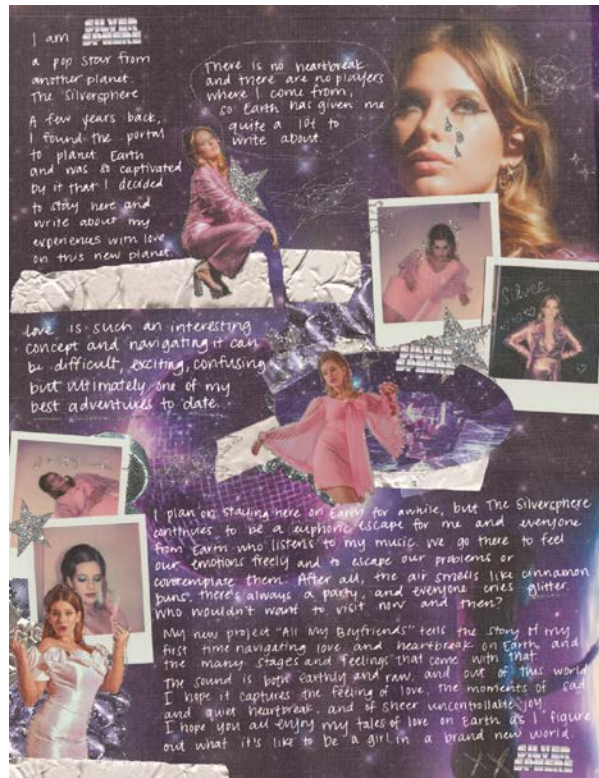 I am SILVER SPHERE
a pop star from
another planet.
The Silversphere
A few years back,
I found the portal
to planet Earth
and was so captivated
by it that I decided
to stay here and
write about my
experiences with love
on this new planet.
There is no heartbreak
and there are no players
where I come from,
so Earth has given me
quite a lot to
write about.
Silver
love is such an interesting
concept and navigating it can
be difficult, exciting, confusing
but ultimately one of my
best adventures to date.
SILVER SPHERE
I plan on staying here on Earth for awhile, but The Silversphere
continues to be a euphoric escape for me and everyone
from Earth who listens to my music. We go there to feel
our emotions freely and to escape our problems or
contemplate them. After all, the air smells like cinnamon
buns, there's always a party, and everyone cries glitter.
Who wouldn't want to visit now and then?
My new project "All My Boyfriends" tells the story of my
first time navigating love and heartbreak on Earth, and
the many stages and feelings that come with that.
The sound is both earthly and raw, and out of this world
I hope it captures the feeling of love, the moments of sad
and quiet heartbreak, and of sheer uncontrollable joy.
I hope you all enjoy my tales of love on Earth as I figure
out what it's like to be a girl in a brand new world.
XX SILVER SPHERE